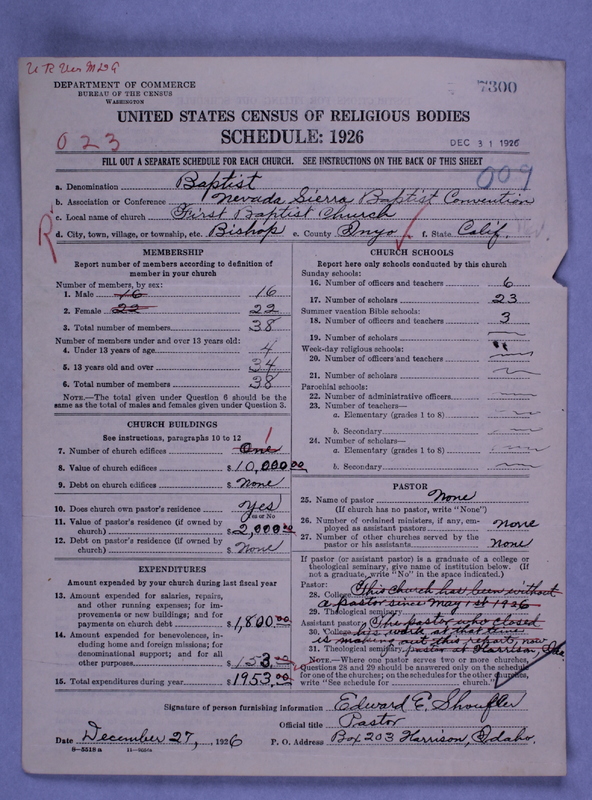 U R Ver M L G
7300
DEPARTMENT OF COMMERCE
BUREAU OF THE CENSUS
WASHINGTON
UNITED STATES CENSUS OF RELIGIOUS BODIES
SCHEDULE: 1926
023
DEC 31 1926
FILL OUT A SEPARATE SCHEDULE FOR EACH CHURCH. SEE INSTRUCTIONS ON THE BACK OF THIS SHEET
009
a. Denomination Baptist
b. Association or Conference Nevada Sierra Baptist Convention
c. Local name of church First Baptist Church
d. City, town, village, or township, etc. Bishop e. County Inyo f. State Calif.
MEMBERSHIP
Report number of members according to definition of
member in your church
Number of members, by sex:
1. Male 16 16
2. Female 22 22
3. Total number of members 38
Number of members under and over 13 years old:
4. Under 13 years of age 4
5. 13 years old and over 34
6. Total number of members 38
NOTE.—The total given under Question 6 should be the
same as the total of males and females given under Question 3.
CHURCH BUILDINGS
See instructions, paragraphs 10 to 12
7. Number of church edifices One 1
8. Value of church edifices $10,000.00
9. Debt on church edifices $ None
10. Does church own pastor's residence Yes
Yes or No
11. Value of pastor's residence (if owned by
church) $2,000.00
12. Debt on pastor's residence (if owned by
church) $ None
EXPENDITURES
Amount expended by your church during last fiscal year
13. Amount expended for salaries, repairs,
and other running expenses; for im-
provements or new buildings; and for
payments on church debt $1,800.00
14. Amount expended for benevolences, in-
cluding home and foreign missions; for
denominational support; and for all
other purposes $153.00
15. Total expenditures during year $1953.00
CHURCH SCHOOLS
Report here only schools conducted by this church
Sunday schools:
16. Number of officers and teachers 6
17. Number of scholars 23
Summer vacation Bible schools:
18. Number of officers and teachers 3
19. Number of scholars
Week-day religious schools:
20. Number of officers and teachers
21. Number of scholars
Parochial schools:
22. Number of administrative officers
23. Number of teachers—
a. Elementary (grades 1 to 8)
b. Secondary
24. Number of scholars—
a. Elementary (grades 1 to 8)
b. Secondary
PASTOR
25. Name of pastor None
(If church has no pastor, write "None")
26. Number of ordained ministers, if any, em-
ployed as assistant pastors none
27. Number of other churches served by the
pastor or his assistants None
If pastor (or assistant pastor) is a graduate of a college or
theological seminary, give name of institution below. (If
not a graduate, write "No" in the space indicated.)
Pastor:
28. College This church has been without
a pastor since May 1st 1926
29. Theological seminary
Assistant pastor: The pastor who closed
30. College his work at that time
is making out this report, now
31. Theological seminary pastor at Harrison, Ida.
NOTE.—Where one pastor serves two or more churches,
Questions 28 and 29 should be answered only on the schedule
for one of the churches; on the schedules for the other churches,
write "See schedule for church."
Signature of person furnishing information Edward E. Shoufler
Official title Pastor
Date December 27, 1926 P. O. Address Box 203 Harrison, Idaho.
9-5518 a